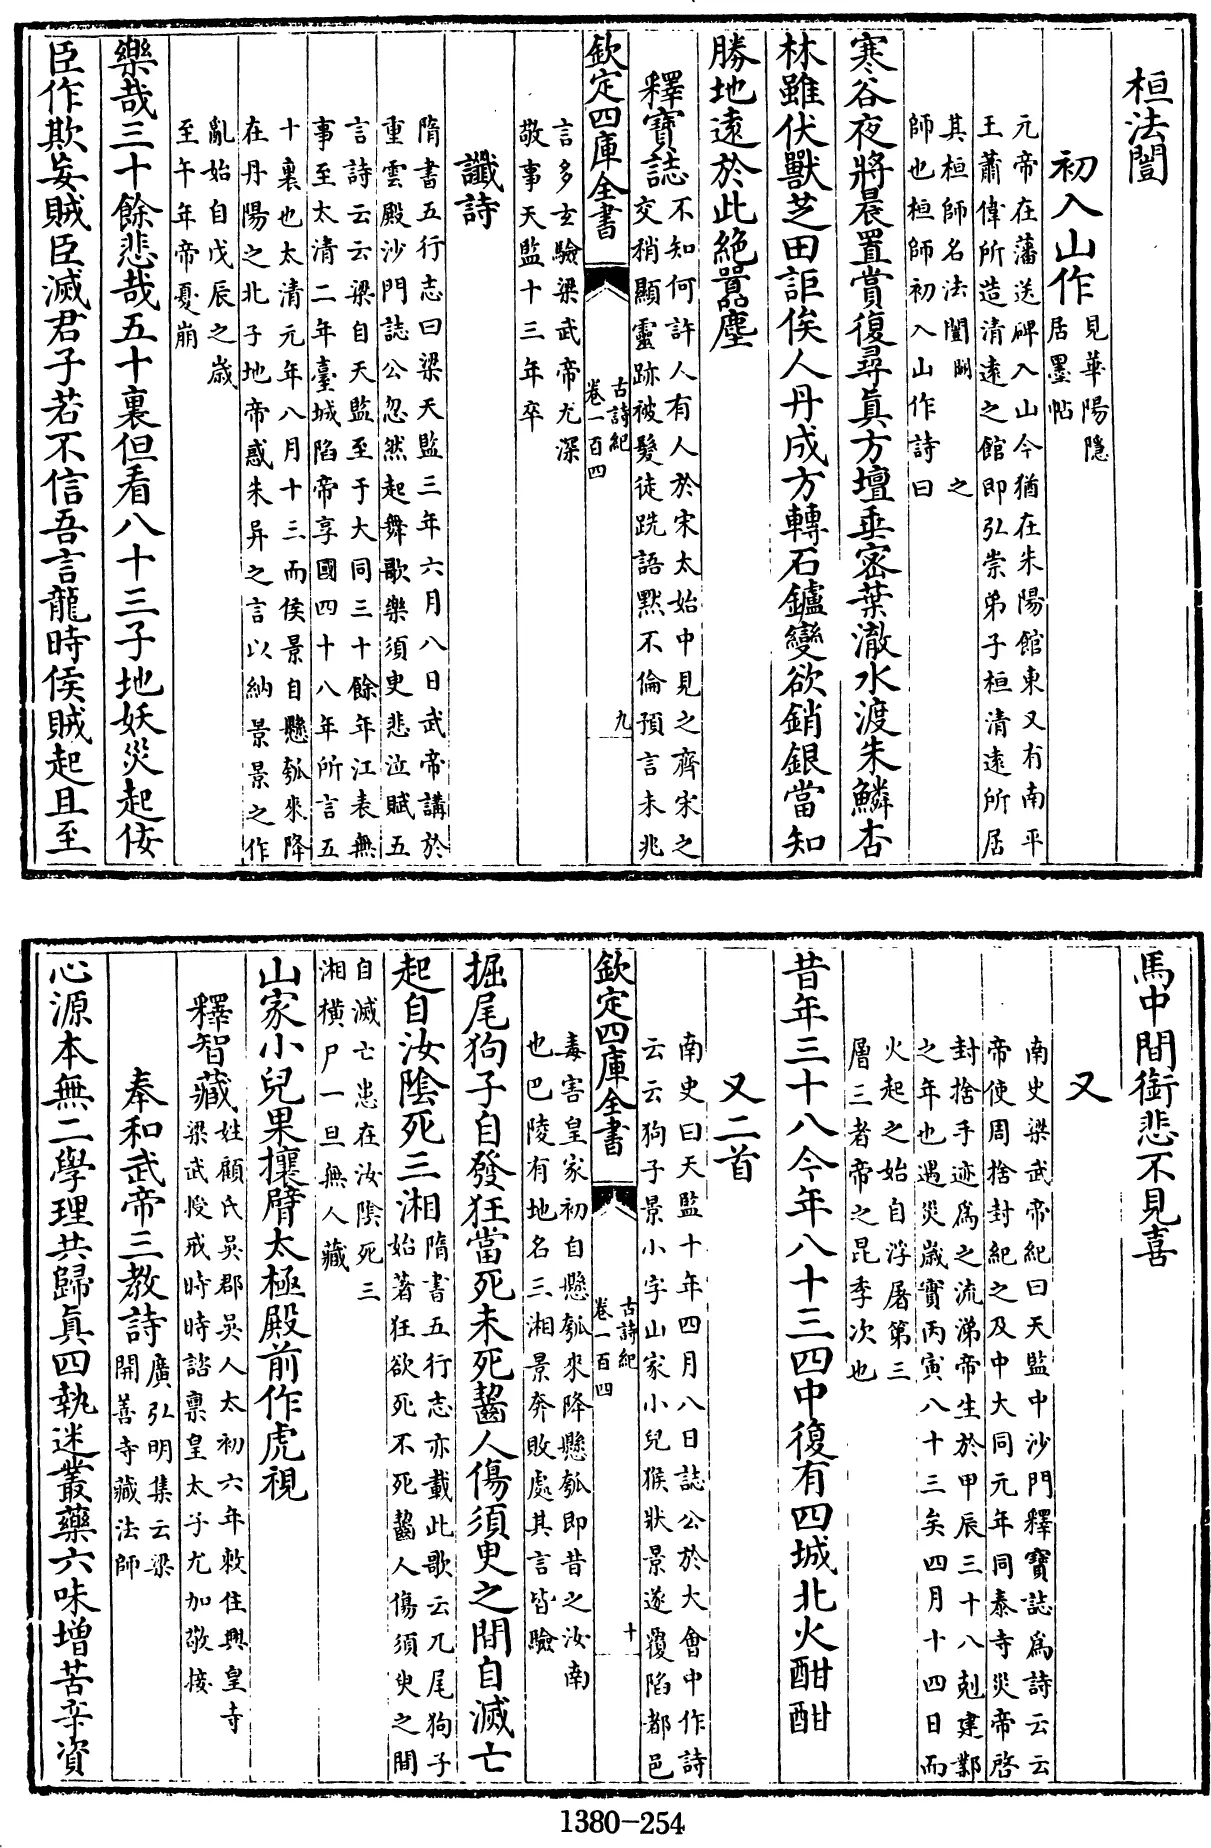 桓法闓
初入山作見華陽隱
居墨帖
元帝在藩送碑入山今猶在朱陽館東又有南平
王蕭偉所造清遠之館即弘崇弟子桓清遠所居
其桓師名法闓闓之
師也桓師初入山作詩曰
寒谷夜將晨置賞復尋真方壇垂密葉澈水渡朱鱗杏
林雖伏獸芝田詎俟人丹成方轉石鑪變欲銷銀當知
勝地遠於此絶囂塵
釋寶誌不知何許人有人於宋太始中見之齊宋之
交稍顯靈跡被髮徒跣語默不倫預言未兆
欽定四庫全書
古詩紀
卷一百四
九
言多玄驗梁武帝尤深
敬事天監十三年卒
讖詩
隋書五行志曰梁天監三年六月八日武帝講於
重雲殿沙門誌公忽然起舞歌樂須臾悲泣賦五
言詩云云梁自天監至于大同三十餘年江表無
事至太清二年臺城陷帝享國四十八年所言五
十裏也太清元年八月十三而侯景自懸瓠來降
在丹陽之北子地帝惑朱异之言以納景景之作
亂始自戊辰之歲
至午年帝憂崩
樂哉三十餘悲哉五十裏但看八十三子地妖災起佞
臣作欺妄賊臣滅君子若不信吾言龍時侯賊起且至
馬中間銜悲不見喜
又
南史梁武帝紀曰天監中沙門釋寶誌爲詩云云
帝使周捨封紀之及中大同元年同泰寺災帝啓
封捨手迹爲之流涕帝生於甲辰三十八剋建鄴
之年也遇災歲實丙寅八十三矣四月十四日而
火起之始自浮屠第三
層三者帝之昆季次也
昔年三十八今年八十三四中復有四城北火酣酣
又二首
南史曰天監十年四月八日誌公於大會中作詩
云云狗子景小字山家小兒猴狀景遂覆陷都邑
欽定四庫全書
古詩紀
卷一百四
十
毒害皇家初自懸瓠來降懸瓠即昔之汝南
也巴陵有地名三湘景奔敗處其言皆驗
掘尾狗子自發狂當死未死齧人傷須臾之間自滅亡
起自汝陰死三湘隋書五行志亦載此歌云兀尾狗子
始著狂欲死不死齧人傷須臾之間
自滅亡患在汝陰死三
湘橫尸一旦無人藏
山家小兒果攘臂太極殿前作虎視
釋智藏姓顧氏吳郡吳人太初六年敕住興皇寺
梁武授戒時時諮稟皇太子尤加敬接
奉和武帝三教詩廣弘明集云梁
開善寺藏法師
心源本無二學理共歸眞四執迷叢藥六味增苦辛資
1380-254